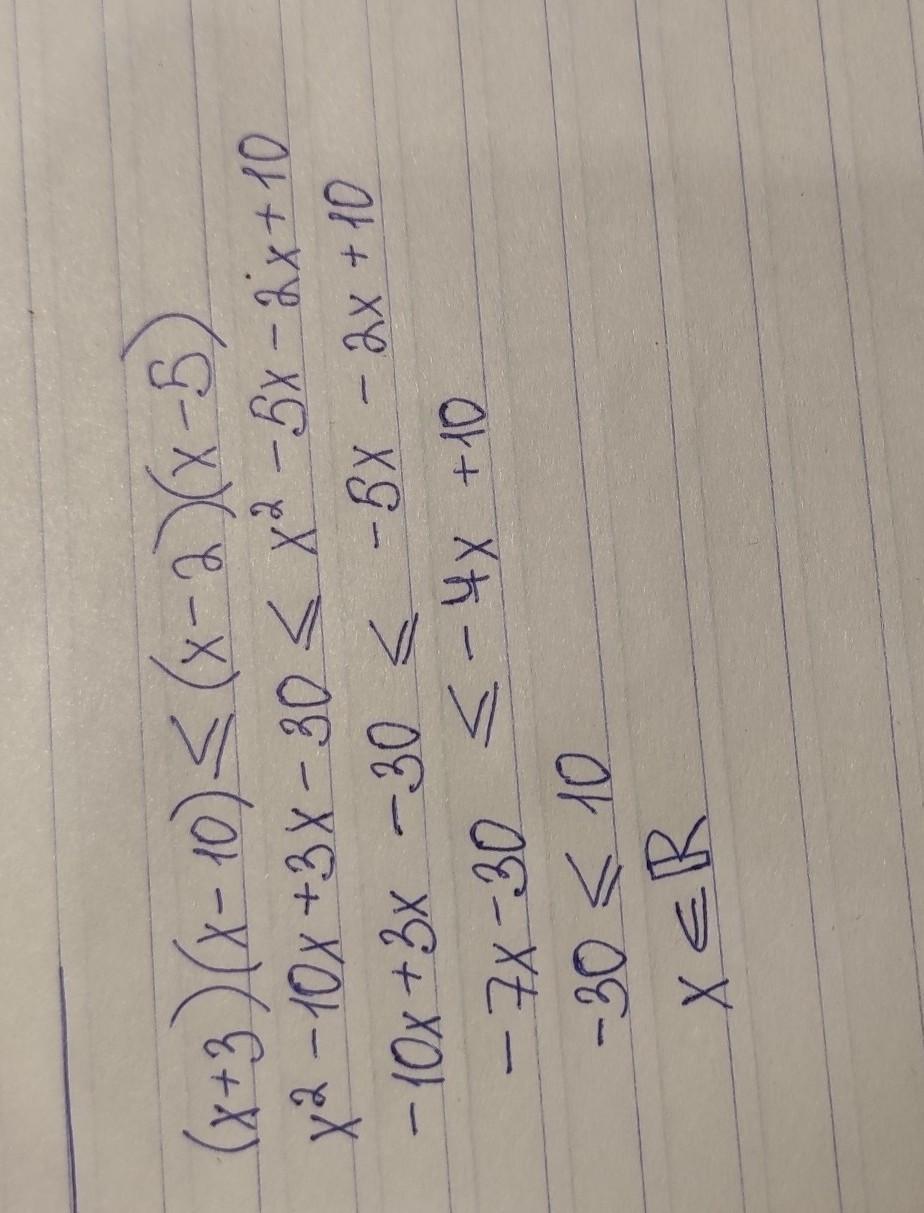 (x+3)(x-10)≤(x-2)(x-5)
x²-10x+3x-30≤x²-5x-2x+10
-10x+3x-30≤-5x-2x+10
-7x-30≤-4x+10
-30≤10
x∈ℝ